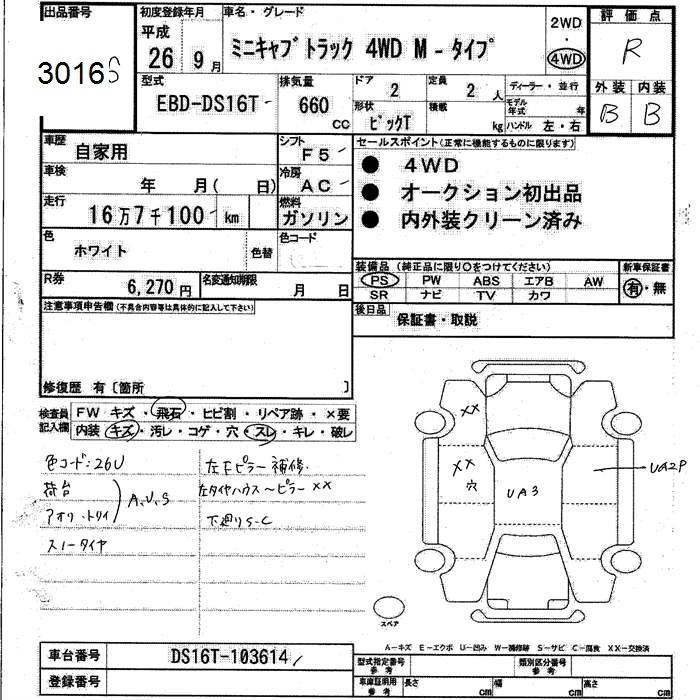 出品番号
初度登録年月
車名・グレード
2WD
・
4WD
評価点
30165
平成
26 9月
ミニキャブトラック 4WD M - タイプ
R
型式
排気量
ドア
定員
ディーラー・並行
外装 内装
EBD-DS16T
660
CC
2
2 人
モデル年式 年
B B
形状
積載
ピックT
kg
ハンドル 左・右
車歴
自家用
シフト
F5
セールスポイント(正常に機能するものに限ります)
● 4WD
● オークション初出品
● 内外装クリーン済み
車検
年 月( 日)
冷房
AC
走行
16万7千100 km
燃料
ガソリン
色
ホワイト
色替
色コード
R券
6,270円
名変通知期限
月 日
装備品(純正品に限り○をつけてください)
新車保証書
PS PW ABS エアB AW
有・無
SR ナビ TV カワ
注意事項申告欄(不具合内容等は具体的に記入して下さい)
後日品
保証書・取説
修復歴 有[箇所 ]
検査員記入欄
FW キズ・飛石・ヒビ割・リペア跡・×要
内装 キズ・汚レ・コゲ・穴・スレ・キレ・破レ
色コード:26U
荷台
アオリ・トリイ
A、U、S
スノータイヤ
左Fピラー補修.
左タイヤハウス～ピラー××
下廻りS-C
××
××
穴
UA3
UA2P
スペア
A－キズ E－エクボ U－凹み W－補修跡 S－サビ C－腐食 XX－交換済
車台番号
DS16T-103614
登録番号
型式指定番号
参考
類別区分番号
参考
車庫証明用
参考
長さ
cm
幅
cm
高さ
cm